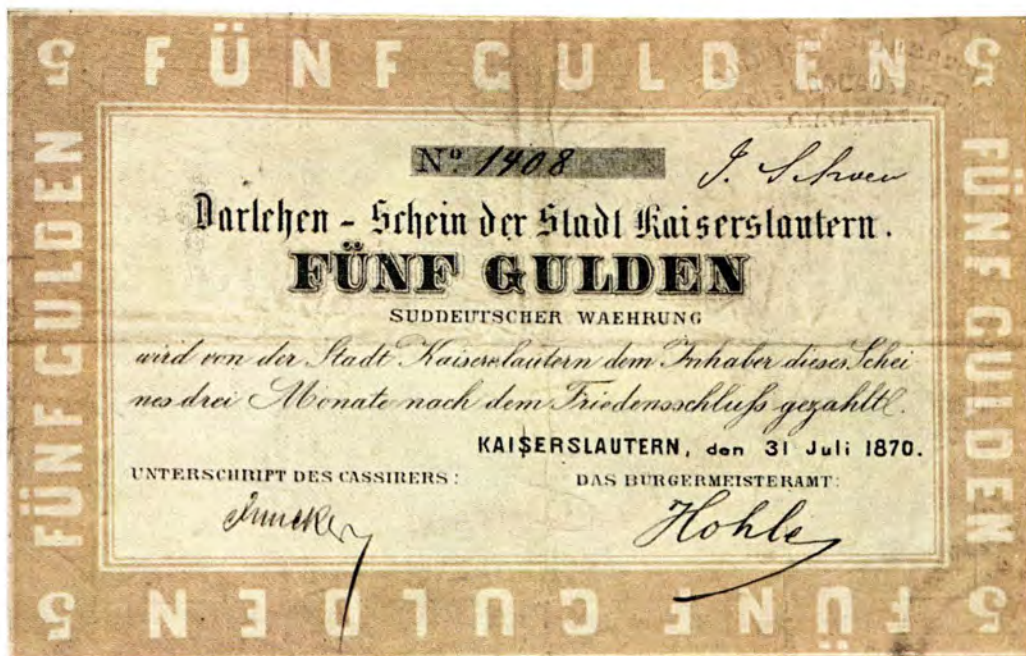 5 FÜNF GULDEN 5
FÜNF GULDEN
FÜNF GULDEN
Nº 1408
Darlehen - Schein der Stadt Kaiserslautern.
FÜNF GULDEN
SUDDEUTSCHER WAEHRUNG
wird von der Stadt Kaiserslautern dem Inhaber dieses Schei
nes drei Monate nach dem Friedensschluß gezahlt.
KAISERSLAUTERN, den 31 Juli 1870.
UNTERSCHRIFT DES CASSIRERS:
DAS BÜRGERMEISTERAMT:
Hohle
5 FÜNF GULDEN 5